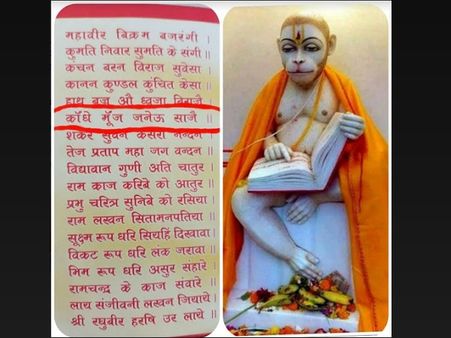 महावीर बिक्रम बजरंगी ।
कुमति निवार सुमति के संगी ॥
कचन बरन विराज सुवेसा ।
कानन कुण्डल कुंचित केसा ॥
हाथ बज्र औ ध्वजा बिराजै ।
काँधे मूँज जनेऊ साजै ॥
शंकर सुवन केसरी नन्दन ।
तेज प्रताप महा जग वन्दन ॥
विद्यावान गुणी अति चातुर ।
राम काज करिबे को आतुर ॥
प्रभु चरित्र सुनिबे को रसिया ।
राम लखन
सूक्ष्म रूप धरि सियहिं दिखावा ।
विकट रूप धरि लंक जरावा ॥
भिम रूप धरि असुर संहारे ।
रामचन्द्र के काज संवारे ॥
लाय संजीवनी लखन जियाये ।
श्री रघुबीर हरषि उर लाये ॥